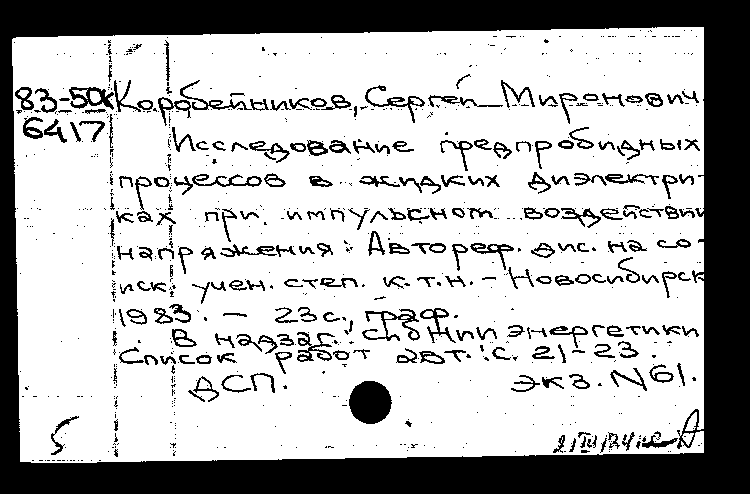 83-50к Коробейников, Сергей Миронович
6417
Исследование предпробидных
процессов в жидких диэлектри-
ках при импульсном воздействии
напряжения: Автореф. дис. на со-
иск. учен. степ. к.т.н. - Новосибирск
1983. - 23 с., граф.
В надзаг.: СибНИИ энергетики
Список работ авт.: с. 21-23.
ДСП. экз. №61.
5